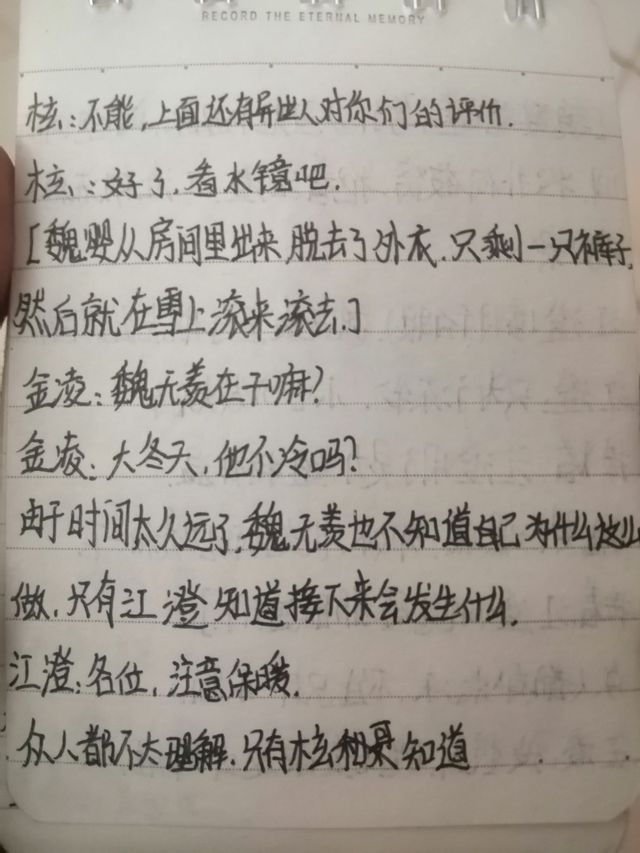 RECORD THE ETERNAL MEMORY
核:不能,上面还有异世人对你们的评价.
核:好了,看水镜吧.
[魏婴从房间里出来,脱去了外衣.只剩一只裤子,
然后就在雪上滚来滚去.]
金凌:魏无羡在干嘛?
金凌:大冬天,他不冷吗?
由于时间太久远了,魏无羡也不知道自己为什么这么
做,只有江澄知道接下来会发生什么.
江澄:各位,注意保暖.
众人都不太理解.只有核和 知道